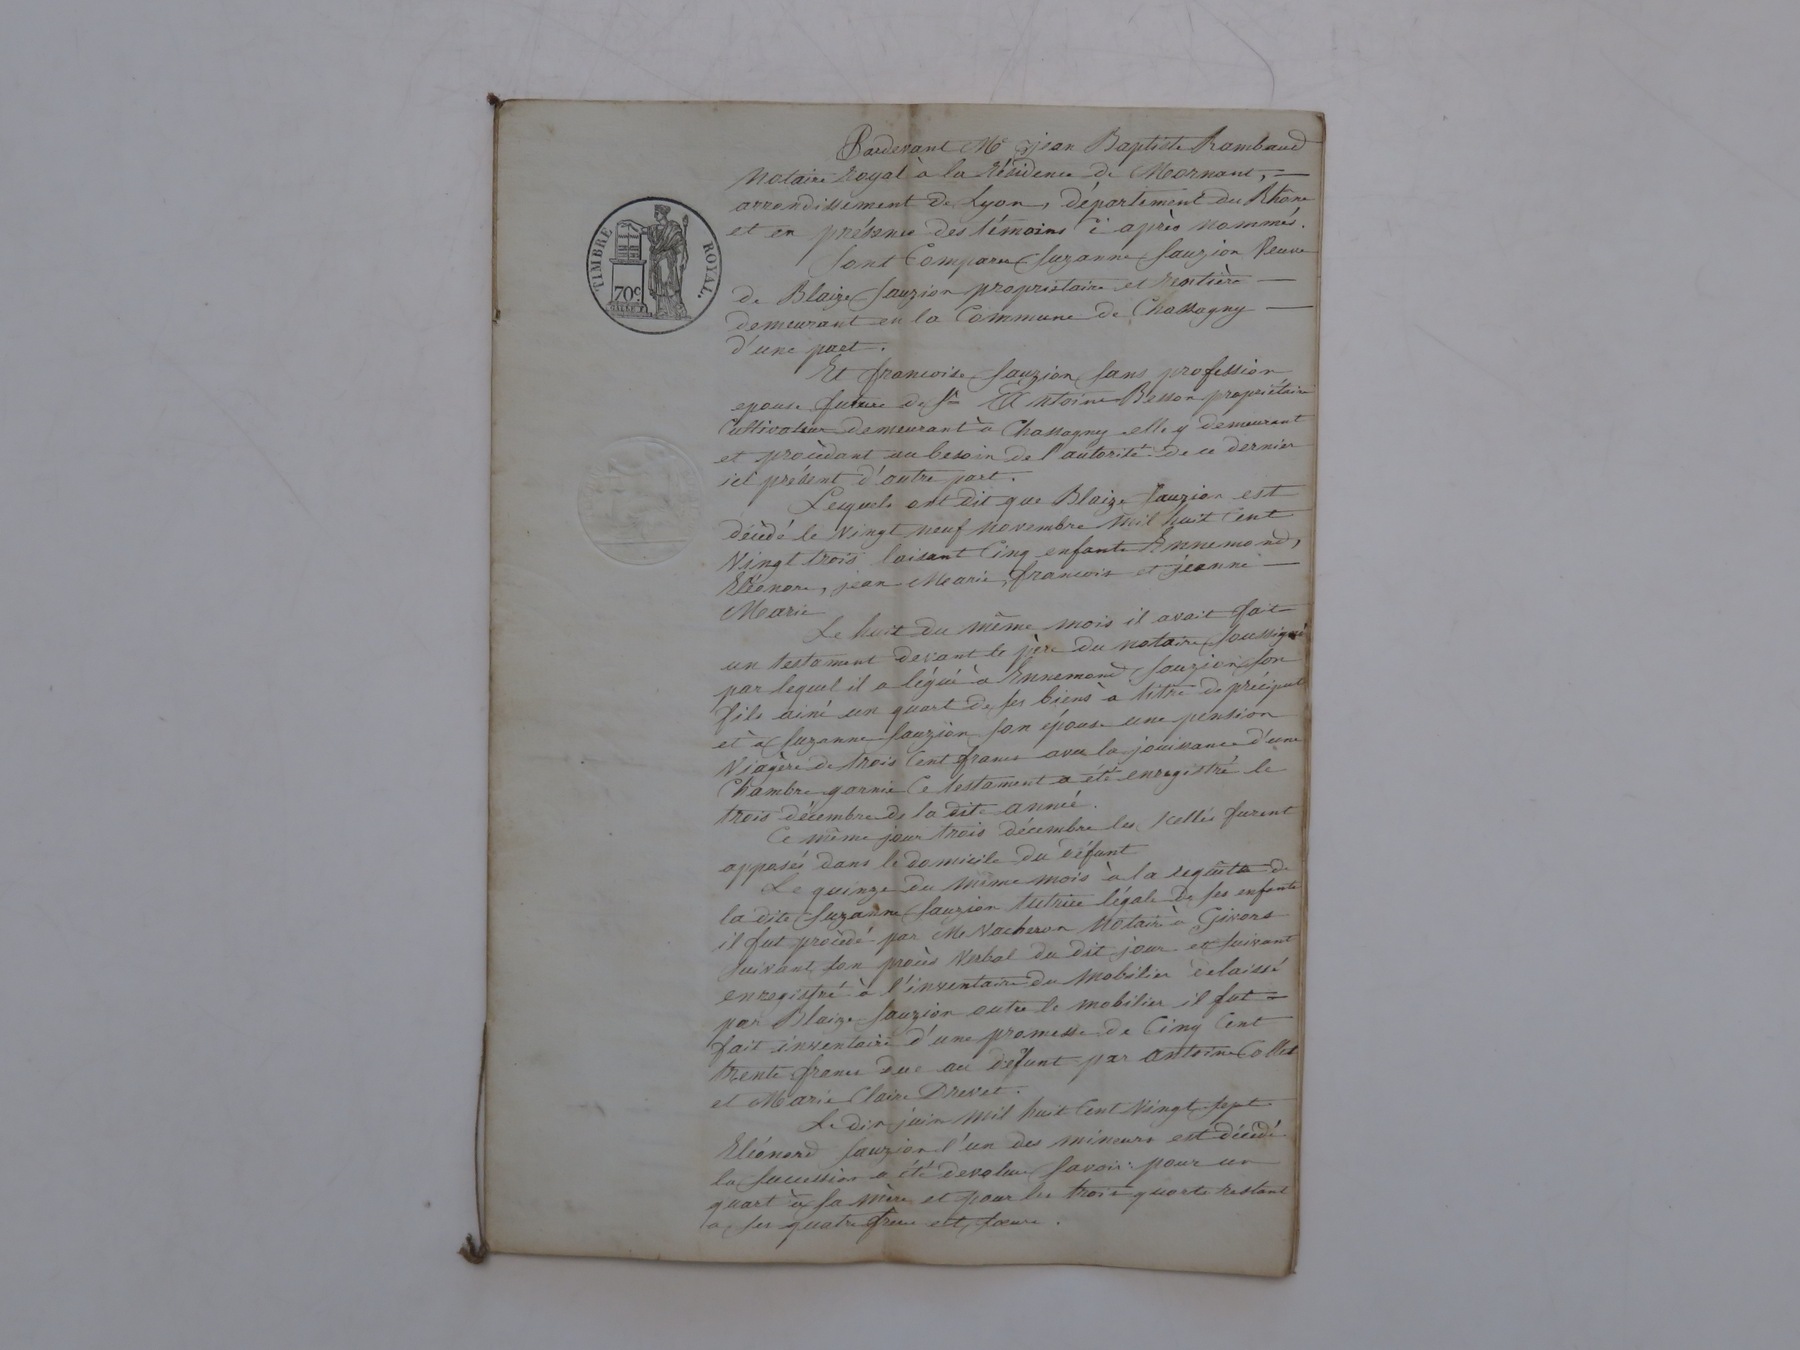 Pardevant Me jean Baptiste Rambaud
Notaire Royal à la Résidence de Mornant,
arrondissement de Lyon, département du Rhone
et en présence des témoins ci après nommés.
TIMBRE ROYAL.
70c
Sont Comparu Suzanne Sauzion Veuve
de Blaize Sauzion propriétaire et rentière
demeurant en la Commune de Chassagny
d'une part.
Et francoise Sauzion sans profession
epouse future de Sr Antoine Besson propriétaire
Cultivateur demeurant à Chassagny elle y demeurant
et procédant au besoin de l'autorité de ce dernier
ici présent d'autre part.
Lesquels ont dit que Blaize Sauzion est
décédé le vingt neuf novembre mil huit Cent
Vingt trois laisant Cinq enfants Ennemond,
Eléonore, jean Marie, francois et jeanne
Marie
Le huit du même mois il avait fait
un testament devant le père du notaire soussigné
par lequel il a légué à Ennemond Sauzion son
fils ainé un quart de ses biens à titre de préciput
et à Suzanne Sauzion son épouse une pension
Viagère de trois Cent francs avec la jouissance d'une
Chambre garnie Ce testament a été enregistré le
trois décembre de la dite année.
Ce même jour trois décembre les scellés furent
apposés dans le domicile du défunt
Le quinze du même mois à la requête de
la dite Suzanne Sauzion tutrice légale de ses enfants
il fut procédé par Me Vacheron Notaire à Givors
suivant son procès verbal du dit jour et suivant
enregistré à l'inventaire du mobilier delaissé
par Blaize Sauzion outre le mobilier il fut
fait inventaire d'une promesse de Cinq Cent
trente francs due au défunt par Antoine Collet
et Marie Claire Drevet.
Le dix juin mil huit Cent Vingt sept
Eléonord Sauzion l'un des mineurs est décédé
la succession a été devolue savoir: pour un
quart à sa mère et pour les trois quarts restant
a ses quatre frere et soeurs.